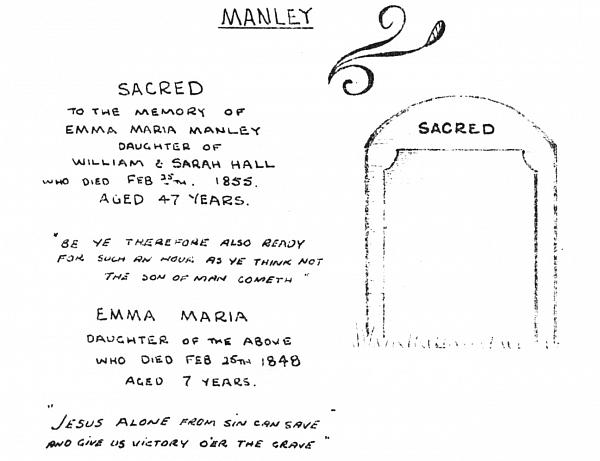 MANLEY
SACRED
TO THE MEMORY OF
EMMA MARIA MANLEY
DAUGHTER OF
WILLIAM & SARAH HALL
WHO DIED FEB 25TH. 1855.
AGED 47 YEARS.
"BE YE THEREFORE ALSO READY
FOR SUCH AN HOUR AS YE THINK NOT
THE SON OF MAN COMETH"
EMMA MARIA
DAUGHTER OF THE ABOVE
WHO DIED FEB 25TH 1848
AGED 7 YEARS.
"JESUS ALONE FROM SIN CAN SAVE
AND GIVE US VICTORY O'ER THE GRAVE"
SACRED